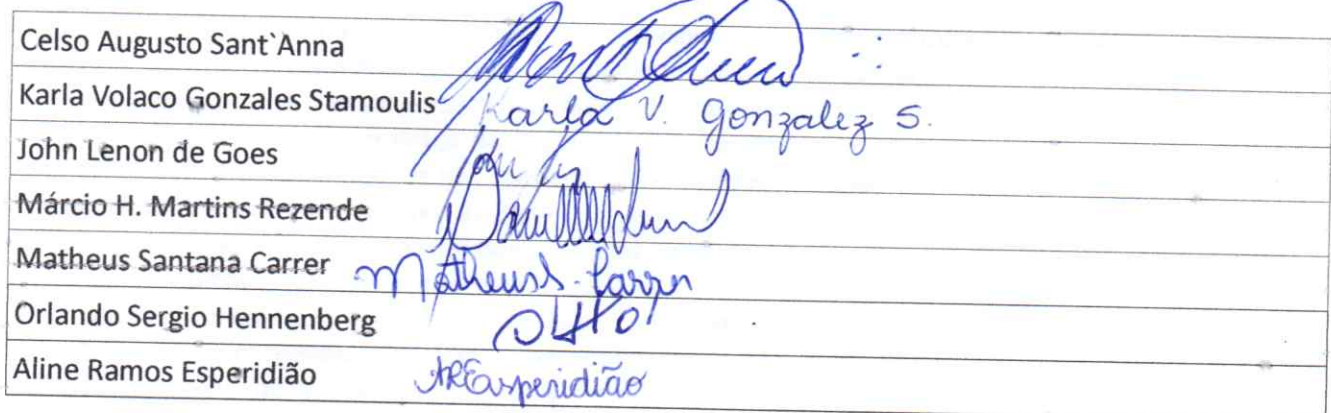 Celso Augusto Sant`Anna
Karla Volaco Gonzales Stamoulis Karla V. Gonzalez S.
John Lenon de Goes
Márcio H. Martins Rezende
Matheus Santana Carrer Matheus S. Carrer
Orlando Sergio Hennenberg
Aline Ramos Esperidião AREsperidião